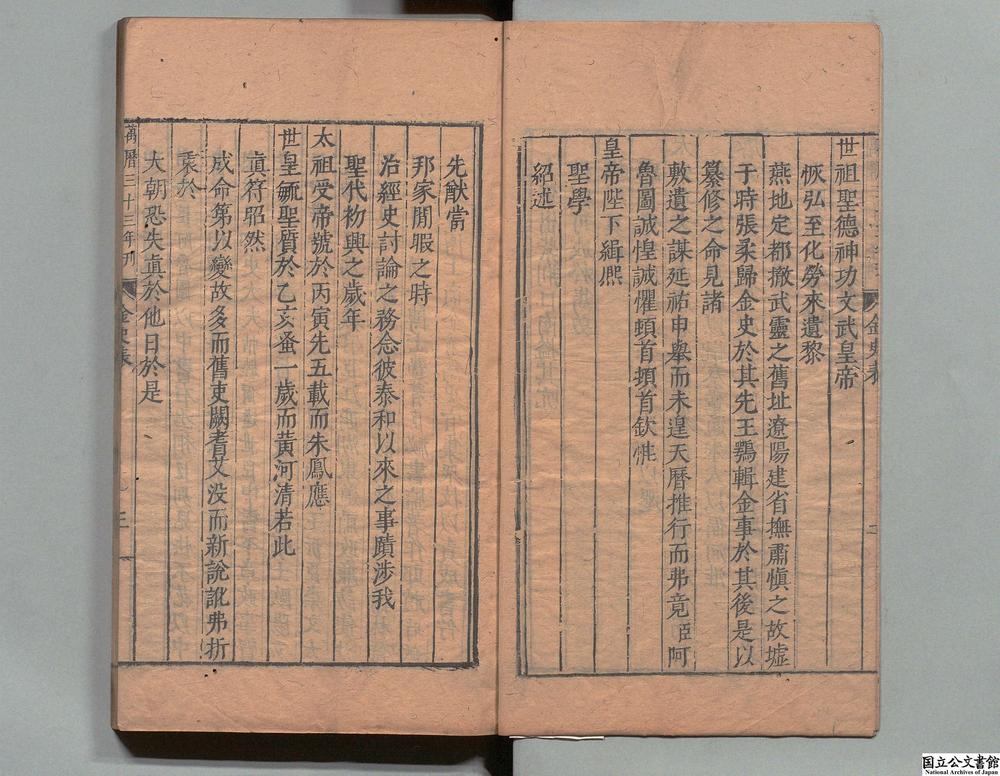 世祖聖德神功文武皇帝
恢弘至化勞來遺黎
燕地定都撤武靈之舊址遼陽建省撫肅愼之故墟
于時張柔歸金史於其先王鶚輯金事於其後是以
纂修之命見諸
敷遺之謀延祐申舉而未遑天曆推行而弗竟臣阿
魯圖誠惶誠懼頓首頓首欽惟
皇帝陛下緝熈
聖學
紹述
金史表
二
先猷當
邦家閒暇之時
治經史討論之務念彼泰和以來之事蹟涉我
聖代初興之歲年
太祖受帝號於丙寅先五載而朱鳳應
世皇毓聖質於乙亥蚤一歲而黃河清若此
眞符昭然
成命第以變故多而舊吏闕耆艾没而新說訛弗折
衷於
大朝恐失眞於他日於是
萬曆三十三年刊
金史表
三
国立公文書館
National Archives of Japan